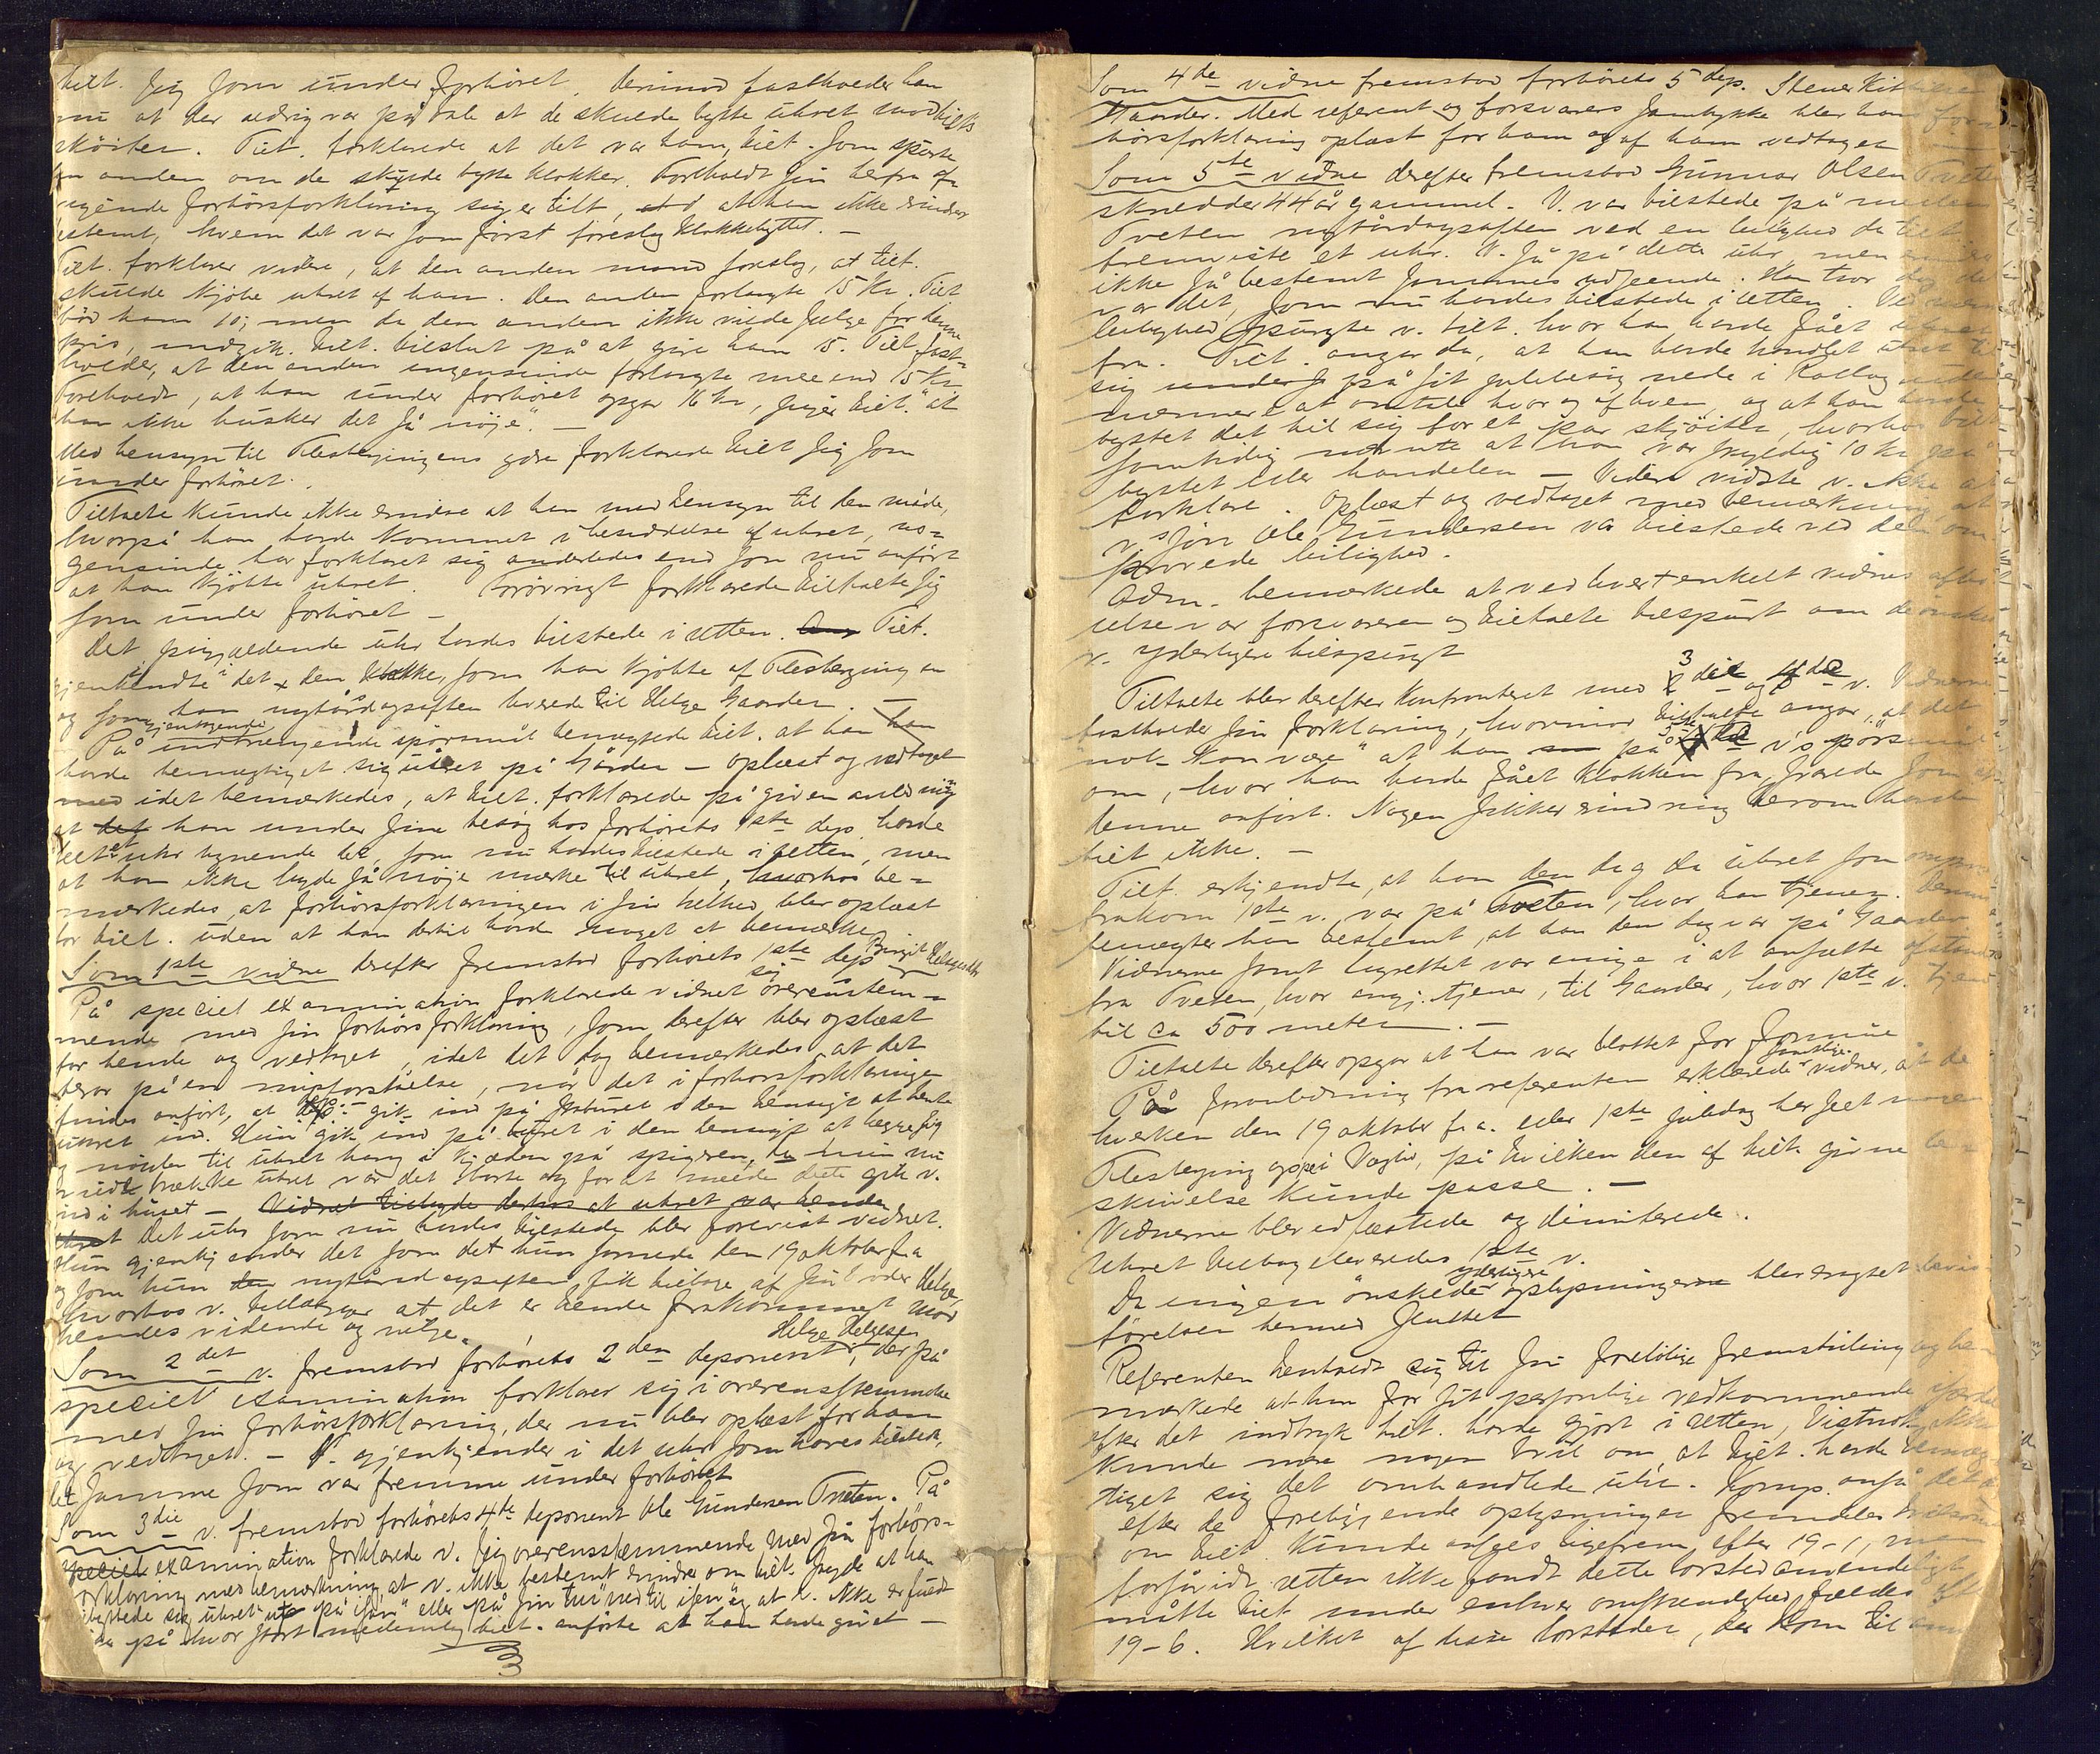 tilt. sig som under forhöret. Derimod fastholder han
nu at der aldrig var på tale at de skulde bytte uhret mod tilts
sköiter. Tilt. forklarede at det var ham, tilt. som spurte
den anden om de skulde bytte klokker. Foreholdt sin herfra af-
vigende forhörsforklaring siger tilt, at han ikke erindrer
bestemt, hvem det var som först foreslog klokkebyttet. —
Tilt. forklarer videre, at den anden mand foreslog, at tilt.
skulde kjöbe uhret af ham. Den anden forlangte 15 Kr. Tilt
böd ham 10; men da den anden ikke vilde sælge for denne
pris, indgik tilt. tilslut på at give ham 15. Tilt. fast-
holder, at den anden ingensinde forlangte mere end 15 Kr
Foreholdt, at han under forhöret opgav 16 kr, siger tilt. "at
han ikke husker det så nöje". —
Med hensyn til Flesbergingens ydre forklarede tilt sig som
under forhöret.
Tiltalte kunde ikke erindre at han med hensyn til den måde,
hvorpå han havde kommet i besiddelse af uhret, no-
gensinde har forklaret sig anderledes end som nu anfört
at han kjöbte uhret. Forövrigt forklarede tiltalte sig
som under forhöret —
Det pågjældende uhr havdes tilstede i retten. Tilt.
gjenkjendte i det den klokke, som han kjöbte af Flesbergingen
og som han nytårsdagsaften leverede til Helge Gaarder. —
På gjentagende indtrængende spörsmål benegtede tilt. at han
havde bemægtiget sig uhret på Gården — Oplæst og vedtaget
idet bemærkedes, at tilt. forklarede på given anledning
at han under sine besög hos forhörets 1ste dep. havde
seet et uhr lignende det, som nu havdes tilstede i retten, men
at han ikke lagde så nöje mærke til uhret, hvorhos be-
mærkedes, at forhörsforklaringen i sin helhed blev oplæst
for tilt. uden at han dertil havde noget at bemærke
Som 1ste vidne derefter fremstod forhörets 1ste dep Birgit Helgesdtr
På speciel examination forklarede vidnet sig overenstem-
mende med sin forhörsforklaring, som derefter blev oplæst
for hende og vedtaget, idet det dog bemærkedes at det
beror på en misforståelse, når det i forhörsforklaringen
findes anfört, at dep. gik ind på buret i den hensigt at hente
uhret ind. Hun gik ind på buret i den hensigt at lægge sig
og vidste til uhret hang i kjæden på spigeren, da hun nu
vilde trække uhret var det borte og for at melde dette gik v.
ind i huset — Vidnet tilbyde derhos at uhret var hendes
Det uhr som nu havdes tilstede blev forevist vidnet.
Hun gjenkjender det som det hun savnede den 19 oktober f.a
og som hun nytårsdagsaften fik tilbage af sin broder Helge,
hvorhos v. tillægger at det er hende frakommet mod
hendes vidende og vilje.
Som 2det v. fremstod forhörets 2den deponent, Helge Helgesen der på
speciel examination forklarer sig i overensstemmelse
med sin forhörsforklaring, der nu blev oplæst for ham
og vedtaget. — V. gjenkjender i det uhr som haves tilstede,
det samme som var fremme under forhöret
Som 3die v. fremstod forhörets 4de deponent Ole Gundersen Tveten. På
speciel examination forklarede v. sig overensstemmende med sin forhörs-
forklaring med bemærkning at v. ikke bestemt erindrer om tilt. sagde at han
byttede sig uhret "ute på isen" eller på sin tur "ned til isen" og at v. ikke er fuldt
på hvor stort mellemlag tilt. anförte at han havde givet —
Som 4de vidne fremstod forhörets 5 dep. Stener Kittilsen
Gaarder. Med referent og forsvarers samtykke blev hans for-
hörsforklaring oplæst for ham og af ham vedtaget
Som 5te vidne derefter fremstod Gunnar Olsen Tveten
skrædder 44 år gammel. V. var tilstede på mellem
Tveten nytårsdagsaften ved en leilighed da tilt.
fremviste et uhr. V. så på dette uhr, men erindrer
ikke så bestemt sammes udseende. Han tror dog det
var det, som nu havdes tilstede i retten. Ved samme
leilighed spurgte v. tilt. hvor han havde fået uhret
fra. Tilt. angav da, at han havde handlet uhret til
sig på sit julebesög nede i Rollag uden
nærmere at omtale hvor og af hvem, og at han havde
byttet det til sig for et par skjöiter, hvorhos tilt
samtidig nævnte at han var skyldig 10 kr på
byttet eller handelen — Videre vidste v. ikke at
forklare. Oplæst og vedtaget med bemærkning at
v's sön Ole Gundersen var tilstede ved den om-
provede leilighed.
Adm. bemærkede at ved hvert enkelt vidnes afhö-
relse var forsvareren og tiltalte tilspurgt om de önsker
v. yderligere tilspurgt
Tiltalte blev derefter konfronteret med 3die og 4de v. Vidnerne
fastholder sin forklaring, hvorimod tiltalte angav, at det
nok "kan være" at han på 3die v's spörsmål
om, hvor han havde fået klokken fra, svarede som af
denne anfört. Nogen sikker erindring herom havde
tilt ikke. —
Tilt. erkjendte, at han den dag da uhret som omprov.
frakom 1ste v., var på Tveten, hvor han tjener. Derimod
benegter han bestemt, at han den dag var på Gaarder
Vidnerne samt lagrettet var enige i at ansætte afstanden
fra Tveten, hvor angj. tjener, til Gaarder, hvor 1ste v. tjener
til ca 500 meter. —
Tiltalte derefter opgav at han var blottet for formue
På foranledning fra referenten erklærede samtlige vidner, at de
hverken den 19 oktober f.a. eller 1ste juledag har seet nogen
Flesberging oppe i Vægli, på hvilken den af tilt. givne be-
skrivelse kunde passe. —
Vidnerne blev edfæstede og dimitterede.
Uhret tilbageleveredes 1ste v.
Da ingen önskede yderligere oplysninger blev ansagt bevis-
förelsen hermed sluttet
Referenten henholdt sig til sin foreløbige fremstilling og be-
mærkede at han for sit personlige vedkommende ifærd
efter det indtryk tilt. havde gjort i retten, vistnok ikke
kunde nære nogen tvil om, at tilt. havde bemæg-
tiget sig det omhandlede uhr. Komp. anså det
efter de foreliggende oplysninger fremdeles tvilsomt
om tilt. kunde ansees ligefrem efter 19-1, men
forsåvidt retten ikke fandt dette lovsted anvendeligt
måtte tilt. under enhver omstændighed fældes efter
19-6. Hvilket af disse lovsteder, der kom til an-